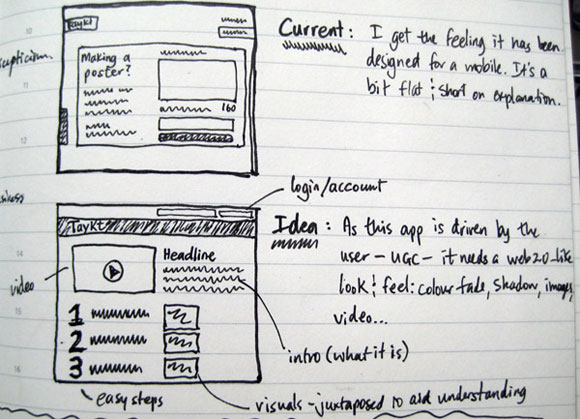 Taykt
Making a
poster?
160
Current: I get the feeling it has been
designed for a mobile. It's a
bit flat & short on explanation.
login/account
Taykt
Headline
video
1
2
3
Idea: As this app is driven by the
user - UGC - it needs a web 2.0-like
look & feel: colour fade, shadow, images,
video...
intro (what it is)
easy steps
visuals - juxtaposed to aid understanding
10
11
12
14
15
16